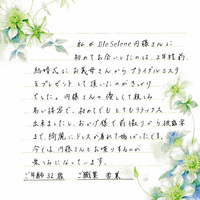 私が BleSelene 内藤さんに
初めてお会いしたのは、2年程前。
結婚式に お義母さんから ブライダルエステ
をプレゼント して頂いたのがきっかけ
でした。内藤さんの優しくて親しみ
易い接客で、初めてでもとてもリラックス
出来ましたし、おかげ様で前撮りから披露宴
まで、綺麗にドレスが着れて嬉しかったです。
今では、内藤さんとお喋りするのが
楽しみになっています。
ご年齢 32 歳 ご職業 営業